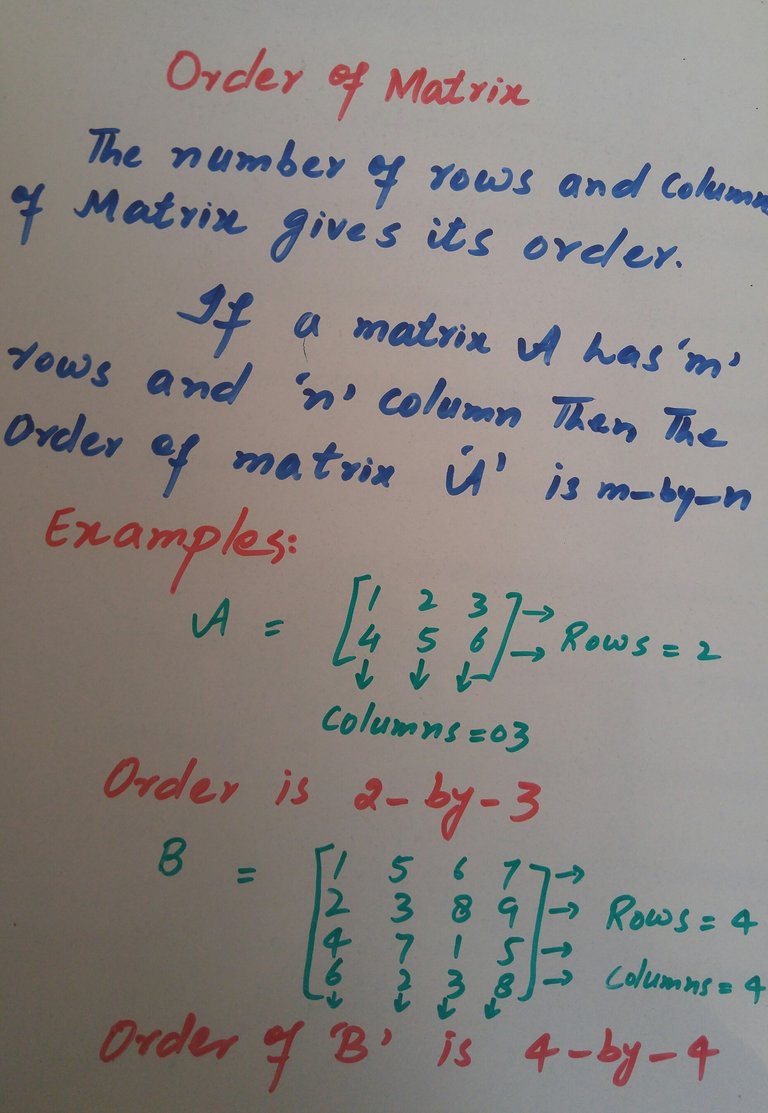 Order of Matrix
The number of rows and column
of Matrix gives its order.
If a matrix A has 'm'
rows and 'n' column Then The
Order of matrix 'A' is m-by-n
Examples:
A = [1 2 3] → Rows = 2
[4 5 6] →
↓ ↓ ↓
Columns = 03
Order is 2-by-3
B = [1 5 6 7] →
[2 3 8 9] → Rows = 4
[4 7 1 5] →
[6 2 3 8] → Columns = 4
↓ ↓ ↓ ↓
Order of 'B' is 4-by-4